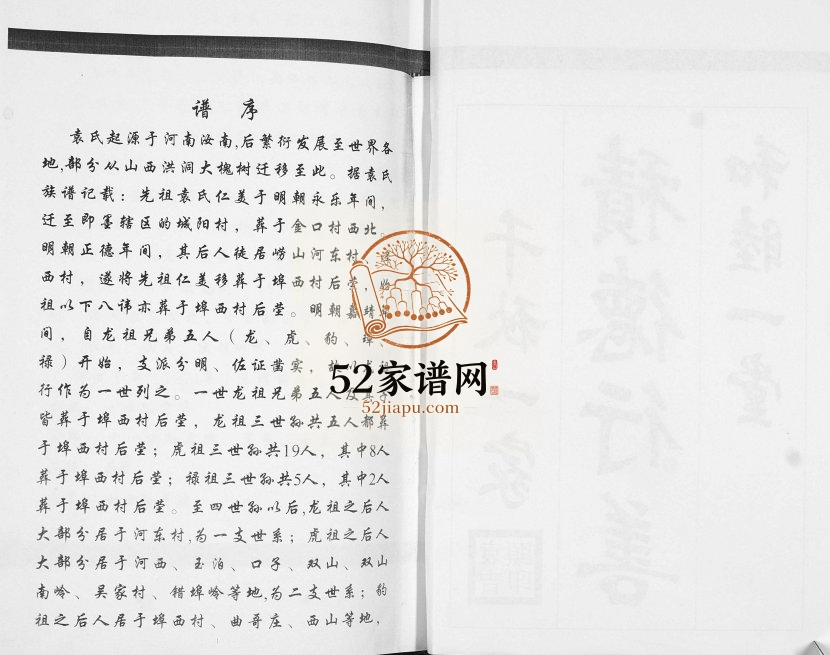 谱 序
袁氏起源于河南汝南,后繁衍发展至世界各
地,部分从山西洪洞大槐树迁移至此。据袁氏
族谱记载：先祖袁氏仁美于明朝永乐年间,
迁至即墨辖区的城阳村，葬于金口村西北。
明朝正德年间，其后人徒居崂山河东村、
西村，遂将先祖仁美移葬于埠西村后茔，始
祖以下八讳亦葬于埠西村后茔。明朝嘉靖年
间，自龙祖兄弟五人（龙、虎、豹、
禄）开始，支派分明、佐证凿实，
行作为一世列之。一世龙祖兄弟五人及其子
皆葬于埠西村后茔，龙祖三世孙共五人都葬
于埠西村后茔；虎祖三世孙共19人，其中8人
葬于埠西村后茔；禄祖三世孙共5人，其中2人
葬于埠西村后茔。至四世孙以后,龙祖之后人
大部分居于河东村,为一支世系；虎祖之后人
大部分居于河西、玉泊、口子、双山、双山
南岭、吴家村、错埠岭等地,为二支世系；豹
祖之后人居于埠西村、曲哥庄、西山等地，
52家谱网
52jiapu.com
和睦一堂
积德行善
千秋一家